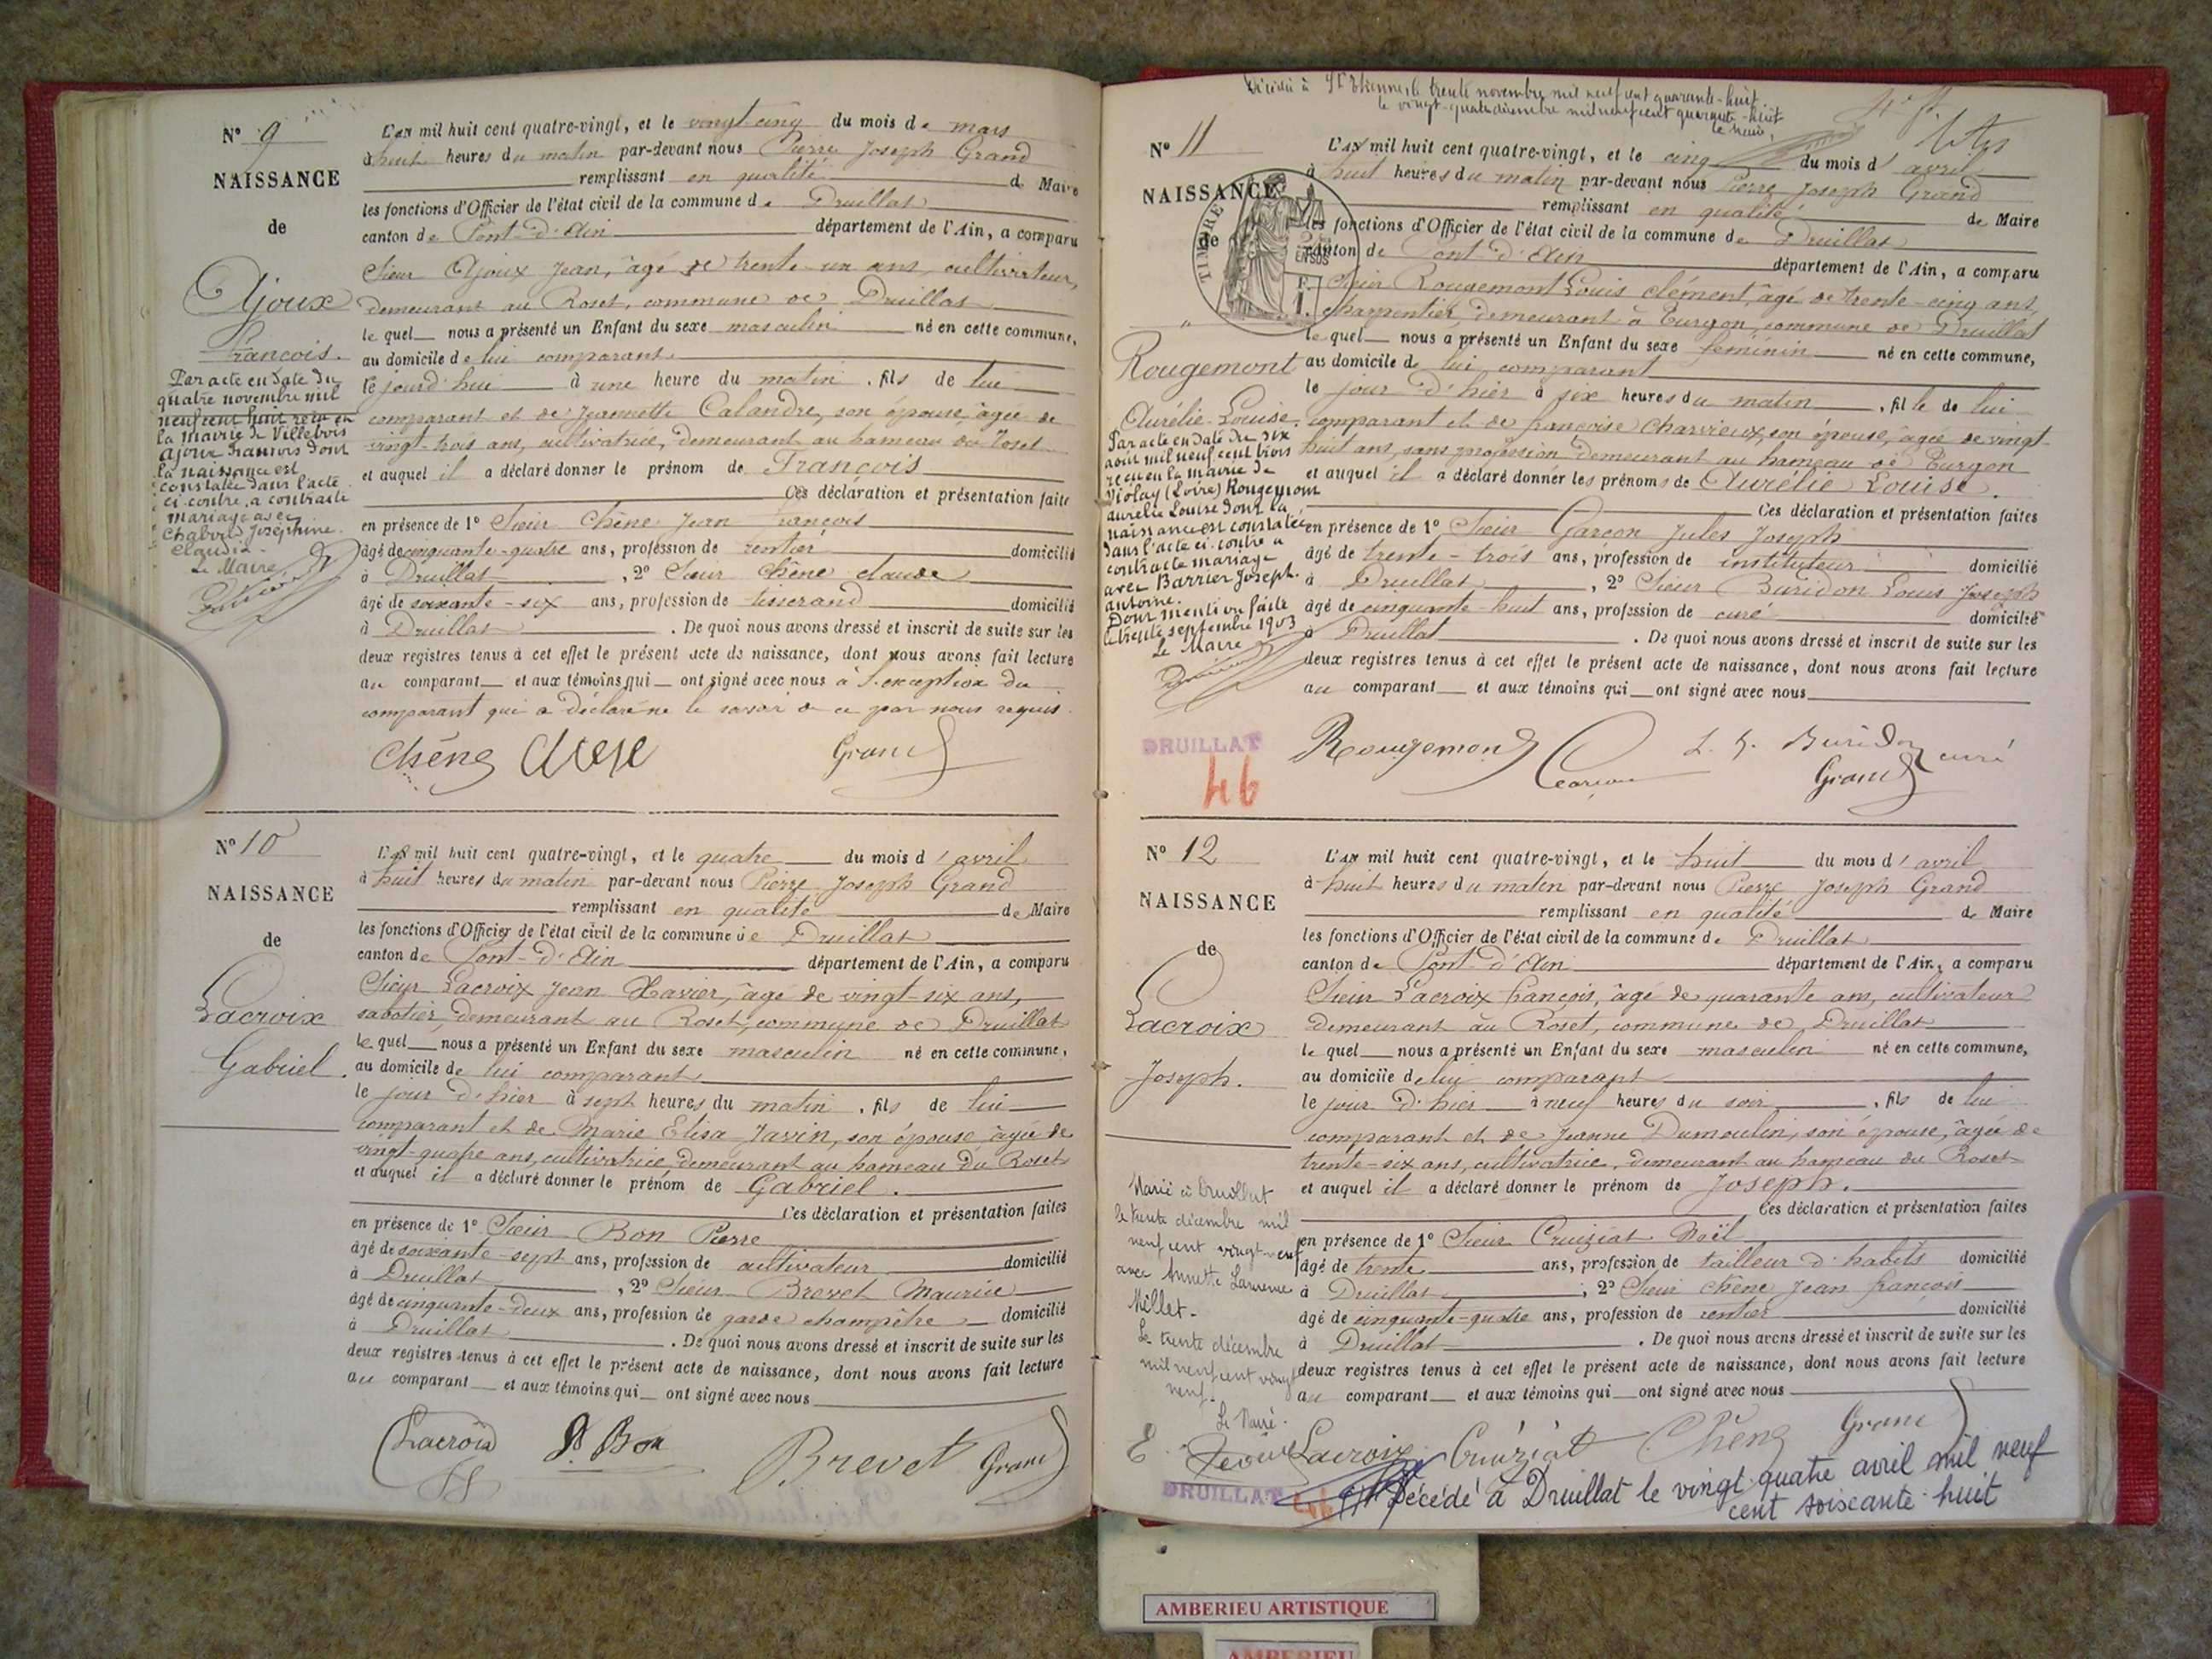 N° 9
NAISSANCE
de
Ajoux
François.
Par acte en date du
quatre novembre mil
neuf cent huit reçu en
la mairie de Villebois
Ajoux François dont
la naissance est
constatée dans l'acte
ci-contre, a contracté
mariage avec
Chabord Joséphine
Claudia.
Le Maire
L'an mil huit cent quatre-vingt, et le vingt cinq du mois de mars
à huit heures du matin par-devant nous Pierre Joseph Grand
remplissant en qualité de Maire
les fonctions d'Officier de l'état civil de la commune de Druillat
canton de Pont-d'Ain département de l'Ain, a comparu
Sieur Ajoux Jean, âgé de trente-un ans, cultivateur,
demeurant au Roset, commune de Druillat
lequel nous a présenté un Enfant du sexe masculin né en cette commune,
au domicile de lui comparant
le jourd'hui à une heure du matin, fils de lui
comparant et de Jeannette Calandre, son épouse âgée de
vingt-trois ans, cultivatrice, demeurant au hameau du Roset
et auquel il a déclaré donner le prénom de François
Ces déclaration et présentation faite
en présence de 1° Sieur Chêne Jean François
âgé de cinquante-quatre ans, profession de rentier domicilié
à Druillat, 2° Sieur Chêne Claude
âgé de soixante-six ans, profession de tisserand domicilié
à Druillat. De quoi nous avons dressé et inscrit de suite sur les
deux registres tenus à cet effet le présent acte de naissance, dont nous avons fait lecture
au comparant et aux témoins qui ont signé avec nous à l'exception du
comparant qui a déclaré ne le savoir de ce par nous requis.
Chêne Chêne Grand
N° 10
NAISSANCE
de
Lacroix
Gabriel.
L'an mil huit cent quatre-vingt, et le quatre du mois d'avril
à huit heures du matin par-devant nous Pierre Joseph Grand
remplissant en qualité de Maire
les fonctions d'Officier de l'état civil de la commune de Druillat
canton de Pont-d'Ain département de l'Ain, a comparu
Sieur Lacroix Jean Xavier, âgé de vingt-six ans,
sabotier, demeurant au Roset, commune de Druillat
lequel nous a présenté un Enfant du sexe masculin né en cette commune,
au domicile de lui comparant
le jour d'hier à sept heures du matin, fils de lui
comparant et de Marie Elisa Javin, son épouse âgée de
vingt-quatre ans, cultivatrice, demeurant au hameau du Roset
et auquel il a déclaré donner le prénom de Gabriel.
Ces déclaration et présentation faites
en présence de 1° Sieur Bon Pierre
âgé de soixante-sept ans, profession de cultivateur domicilié
à Druillat, 2° Sieur Brevet Maurice
âgé de cinquante-deux ans, profession de garde champêtre domicilié
à Druillat. De quoi nous avons dressé et inscrit de suite sur les
deux registres tenus à cet effet le présent acte de naissance, dont nous avons fait lecture
au comparant et aux témoins qui ont signé avec nous
Lacroix P. Bon Brevet Grand
Décédée à St Etienne, le trente novembre mil neuf cent quarante-huit
le vingt-quatre décembre mil neuf cent quarante-huit
N° 11
NAISSANCE
de
TIMBRE
EN SUS
Rougemont
Aurélie Louise.
Par acte en date du six
août mil neuf cent trois
reçu en la mairie de
Violay (Loire) Rougemont
Aurélie Louise dont la
naissance est constatée
dans l'acte ci-contre a
contracté mariage
avec Barrier Joseph
Antoine.
Dont mention faite
le trente septembre 1903
Le Maire
L'an mil huit cent quatre-vingt, et le cinq du mois d'avril
à huit heures du matin par-devant nous Pierre Joseph Grand
remplissant en qualité de Maire
les fonctions d'Officier de l'état civil de la commune de Druillat
canton de Pont-d'Ain département de l'Ain, a comparu
Sieur Rougemont Louis Clément, âgé de trente-cinq ans,
charpentier, demeurant à Turgon, commune de Druillat
lequel nous a présenté un Enfant du sexe féminin né en cette commune,
au domicile de lui comparant
le jour d'hier à six heures du matin, fille de lui
comparant et de Françoise Charvieux, son épouse, âgée de vingt
huit ans, sans profession demeurant au hameau de Turgon
et auquel il a déclaré donner les prénoms de Aurélie Louise.
Ces déclaration et présentation faites
en présence de 1° Sieur Garçon Jules Joseph
âgé de trente-trois ans, profession de instituteur domicilié
à Druillat, 2° Sieur Buridon Louis Joseph
âgé de cinquante-huit ans, profession de curé domicilié
à Druillat. De quoi nous avons dressé et inscrit de suite sur les
deux registres tenus à cet effet le présent acte de naissance, dont nous avons fait lecture
au comparant et aux témoins qui ont signé avec nous
Rougemont Garçon L. J. Buridon curé
Grand
DRUILLAT
46
N° 12
NAISSANCE
de
Lacroix
Joseph.
Marié à Druillat
le trente décembre mil
neuf cent vingt-neuf
avec Annette Laurence
Millet.
Le trente décembre
mil neuf cent vingt
neuf.
Le Maire.
L'an mil huit cent quatre-vingt, et le huit du mois d'avril
à huit heures du matin par-devant nous Pierre Joseph Grand
remplissant en qualité de Maire
les fonctions d'Officier de l'état civil de la commune de Druillat
canton de Pont-d'Ain département de l'Ain, a comparu
Sieur Lacroix François, âgé de quarante ans, cultivateur
demeurant au Roset, commune de Druillat
lequel nous a présenté un Enfant du sexe masculin né en cette commune,
au domicile de lui comparant
le jour d'hier à neuf heures du soir, fils de lui
comparant et de Jeanne Dumoulin, son épouse, âgée de
trente-six ans, cultivatrice, demeurant au hameau du Roset
et auquel il a déclaré donner le prénom de Joseph.
Ces déclaration et présentation faites
en présence de 1° Sieur Cruiziat Noël
âgé de trente ans, profession de tailleur d'habits domicilié
à Druillat, 2° Sieur Chêne Jean François
âgé de cinquante-quatre ans, profession de rentier domicilié
à Druillat. De quoi nous avons dressé et inscrit de suite sur les
deux registres tenus à cet effet le présent acte de naissance, dont nous avons fait lecture
au comparant et aux témoins qui ont signé avec nous
Lacroix Cruiziat Chêne Grand
DRUILLAT 46 Décédé à Druillat le vingt quatre avril mil neuf
cent soixante-huit
AMBERIEU ARTISTIQUE
AMBERIEU